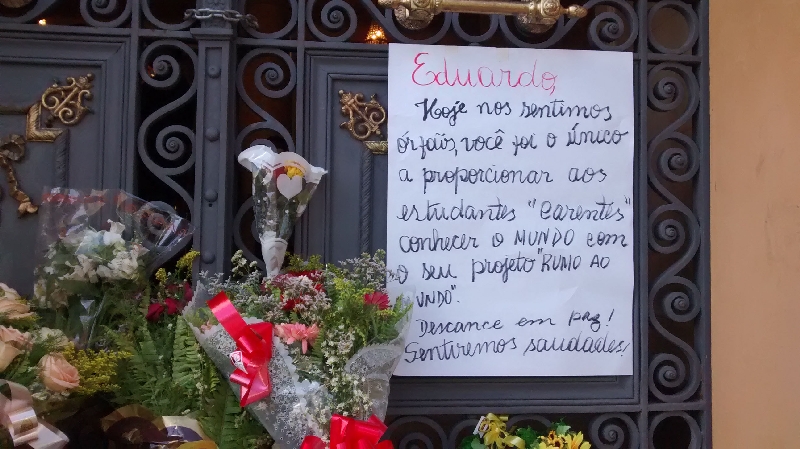 Eduardo,
Hoje nos sentimos
órfaís, você foi o Único
a proporcionar aos
estudantes "Carentes"
conhecer o MUNDO com
o seu projeto "RUMO AO
UNDO".
Descance em paz!
Sentiremos saudades!